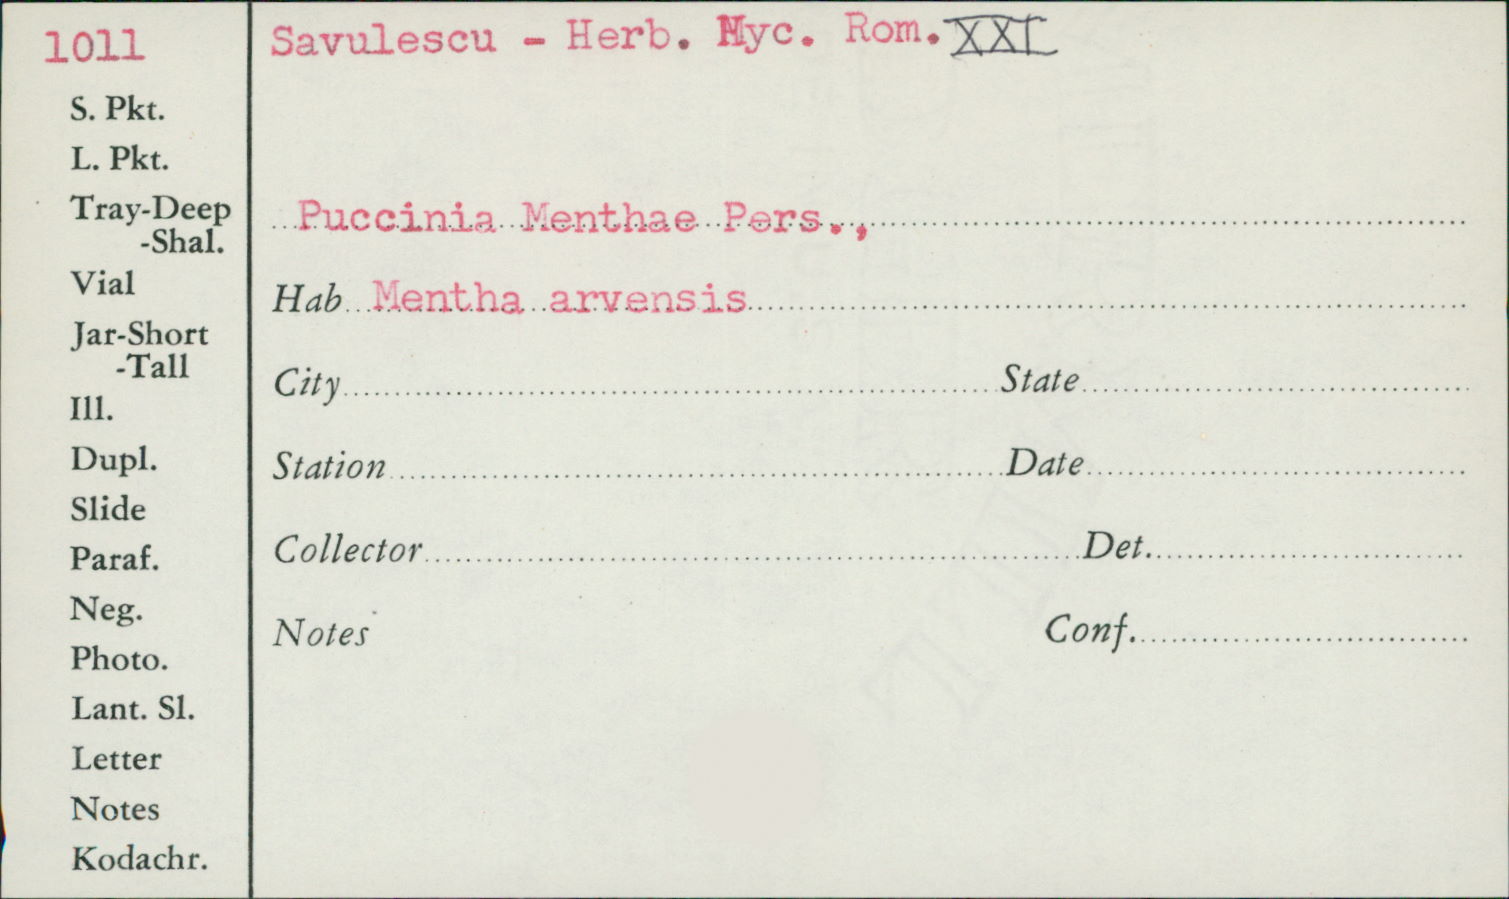 1011
Savulescu - Herb. Myc. Rom. XXI
S. Pkt.
L. Pkt.
Tray-Deep
-Shal.
Vial
Jar-Short
-Tall
Ill.
Dupl.
Slide
Paraf.
Neg.
Photo.
Lant. Sl.
Letter
Notes
Kodachr.
Puccinia Menthae Pers.,
Hab Mentha arvensis
City State
Station Date
Collector Det.
Notes Conf.